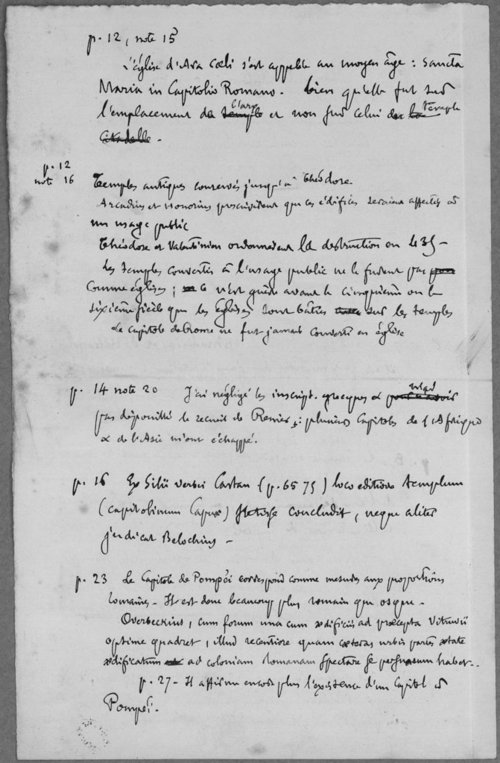 p. 12, note 15
L'église d'Ara Coeli s'est appelée au moyen âge : Sancta
Maria in Capitolio Romano. bien qu'elle fut sur
l'emplacement de l'arx et non sur celui du temple
citadelle.
p. 12
note 16
Temples antiques conservés jusqu'à Théodose.
Arcadius et Honorius prescrivirent que ces édifices seraient affectés à
un usage public
Théodose et Valentinien ordonnèrent la destruction en 435 -
Les temples convertis à l'usage public ne le furent pas
comme églises ; ce n'est guère avant le cinquième ou le
sixième siècle que les églises sont bâties sur les temples
Le Capitole de Rome ne fut jamais converti en église
p. 14 note 20 J'ai négligé les inscript. grecques et
pas dépouillé le recueil de Renier, ; plusieurs Capitoles de l'Afrique
et de l'Asie m'ont échappé.
p. 16 Ex Silii versu Castan (p. 65 75) loco editiore templum
(capitolinum Capuæ) stetisse concludit, neque aliter
judicat Belochius -
p. 23 Le Capitole de Pompéi correspond comme mesures aux proportions
romaines. - Il est donc beaucoup plus romain que osque.
Overbeckius, cum forum una cum ædificiis ad præcepta Vitruvii
optime quadret, illud recentiore quam cæteras urbis partes ætate
ædificatum ad coloniam romanam spectare se persuasum habet.
p. 27 - Il affirme encore plus l'existence d'un Capitole à
Pompéi.